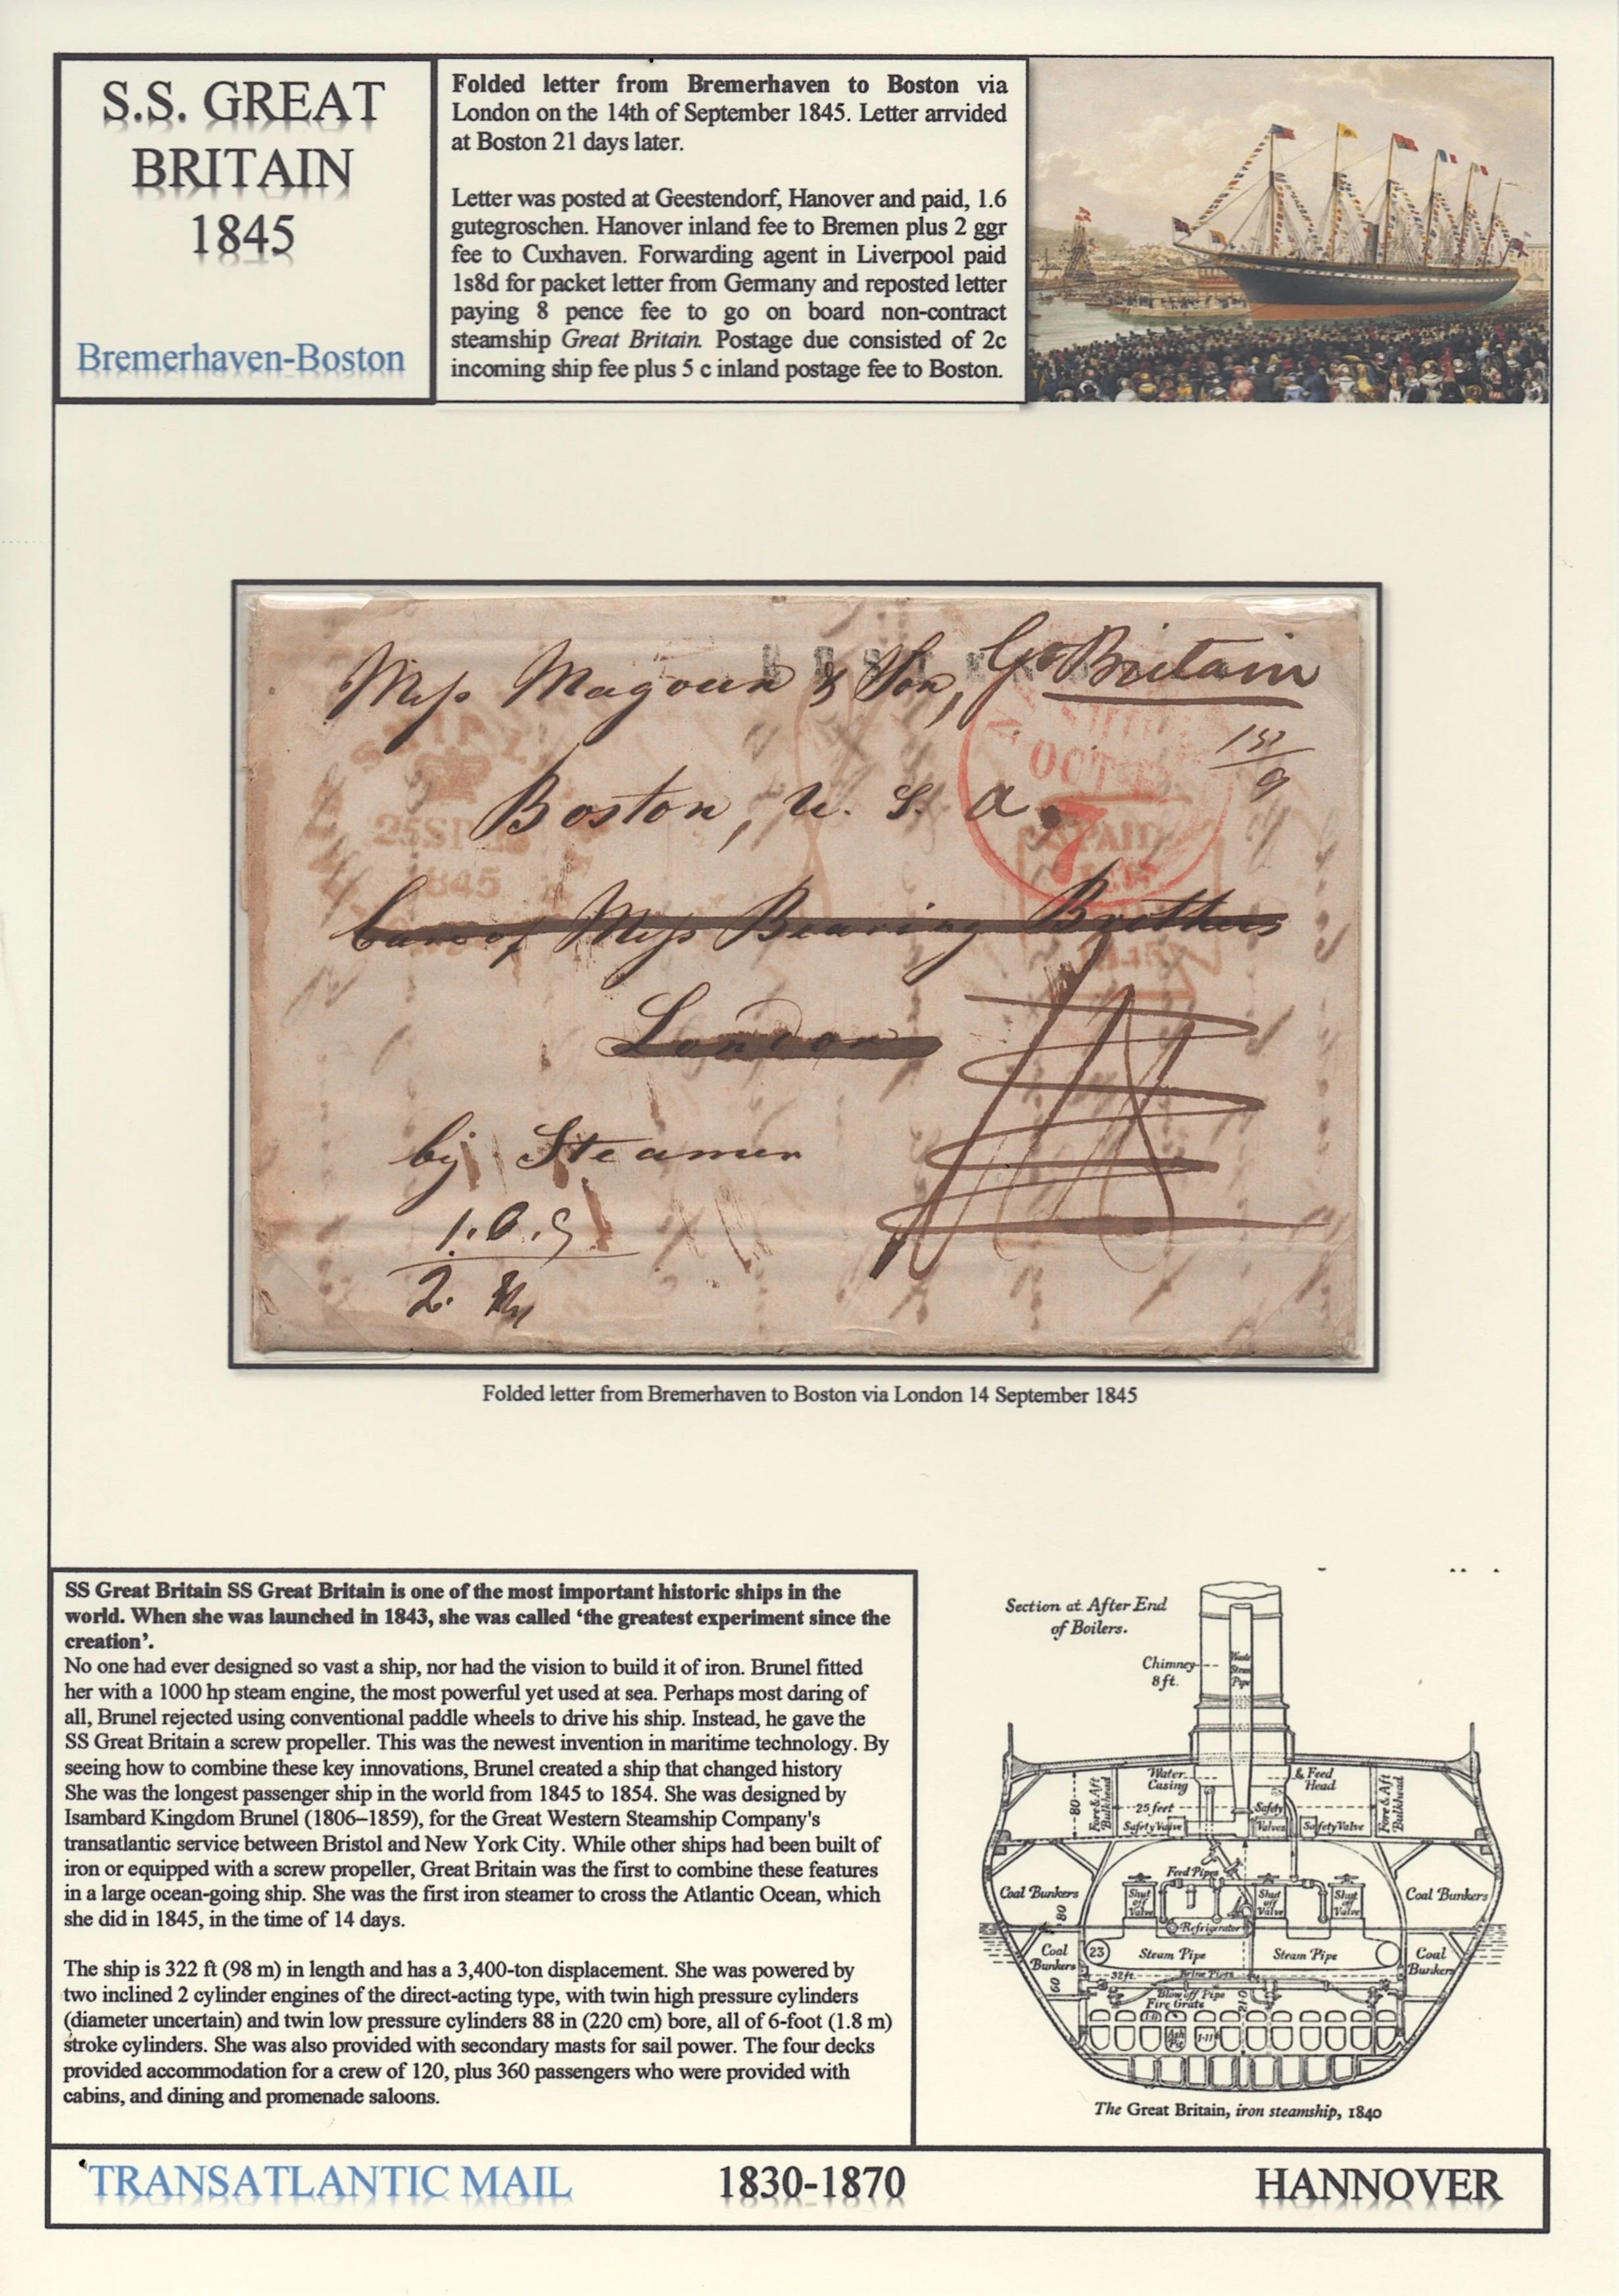 S.S. GREAT
BRITAIN
1845
Bremerhaven-Boston
Folded letter from Bremerhaven to Boston via
London on the 14th of September 1845. Letter arrvided
at Boston 21 days later.
Letter was posted at Geestendorf, Hanover and paid, 1.6
gutegroschen. Hanover inland fee to Bremen plus 2 ggr
fee to Cuxhaven. Forwarding agent in Liverpool paid
1s8d for packet letter from Germany and reposted letter
paying 8 pence fee to go on board non-contract
steamship Great Britain. Postage due consisted of 2c
incoming ship fee plus 5 c inland postage fee to Boston.
Mess Magoun & Son, Gt Britain
SHIP
OCT
Boston, U. S. A.
25 SP
1845
7
PAID
Care of Mess Bearing Brothers
1845
London
by Steamer
2.
Folded letter from Bremerhaven to Boston via London 14 September 1845
SS Great Britain SS Great Britain is one of the most important historic ships in the
world. When she was launched in 1843, she was called ‘the greatest experiment since the
creation’.
No one had ever designed so vast a ship, nor had the vision to build it of iron. Brunel fitted
her with a 1000 hp steam engine, the most powerful yet used at sea. Perhaps most daring of
all, Brunel rejected using conventional paddle wheels to drive his ship. Instead, he gave the
SS Great Britain a screw propeller. This was the newest invention in maritime technology. By
seeing how to combine these key innovations, Brunel created a ship that changed history
She was the longest passenger ship in the world from 1845 to 1854. She was designed by
Isambard Kingdom Brunel (1806–1859), for the Great Western Steamship Company's
transatlantic service between Bristol and New York City. While other ships had been built of
iron or equipped with a screw propeller, Great Britain was the first to combine these features
in a large ocean-going ship. She was the first iron steamer to cross the Atlantic Ocean, which
she did in 1845, in the time of 14 days.
The ship is 322 ft (98 m) in length and has a 3,400-ton displacement. She was powered by
two inclined 2 cylinder engines of the direct-acting type, with twin high pressure cylinders
(diameter uncertain) and twin low pressure cylinders 88 in (220 cm) bore, all of 6-foot (1.8 m)
stroke cylinders. She was also provided with secondary masts for sail power. The four decks
provided accommodation for a crew of 120, plus 360 passengers who were provided with
cabins, and dining and promenade saloons.
Section at After End
of Boilers.
Chimney
8 ft.
Waste
Steam
Pipe
Water
Casing
& Feed
Head
Fore & Aft
Bulkhead
80
25 feet
Safety Valve
Safety
Valves
Safety Valve
Fore & Aft
Bulkhead
Feed Pipes
Coal Bunkers
Shut
off
Valve
Shut
off
Valve
Shut
off
Valve
Coal Bunkers
80
Refrigerator
Coal
Bunkers
23
Steam Pipe
Steam Pipe
Coal
Bunkers
60
32 ft.
Brine Pipes
Blow off Pipe
Fire Grate
Ash
Pit
The Great Britain, iron steamship, 1840
TRANSATLANTIC MAIL
1830-1870
HANNOVER